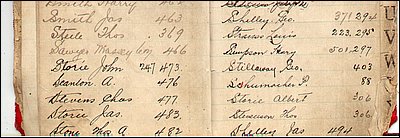 Smith Harry 462
Smith Jas 463
Steele Thos .369
Sawyer Massey Coy, 466
Storie John 247 473
Scanlon A. 476
Stevens Chas 477
Storie Jas. 483
Stone Mrs A 482
Shelley, Geo. 371,294
Strauss Louis 223.295
Simpson Harry 501,297
Stilloway Geo. 403
Schumacher P. 88
Storie Albert 306
Stevenson Thos 306
Shelley Jas 494
U
V
W